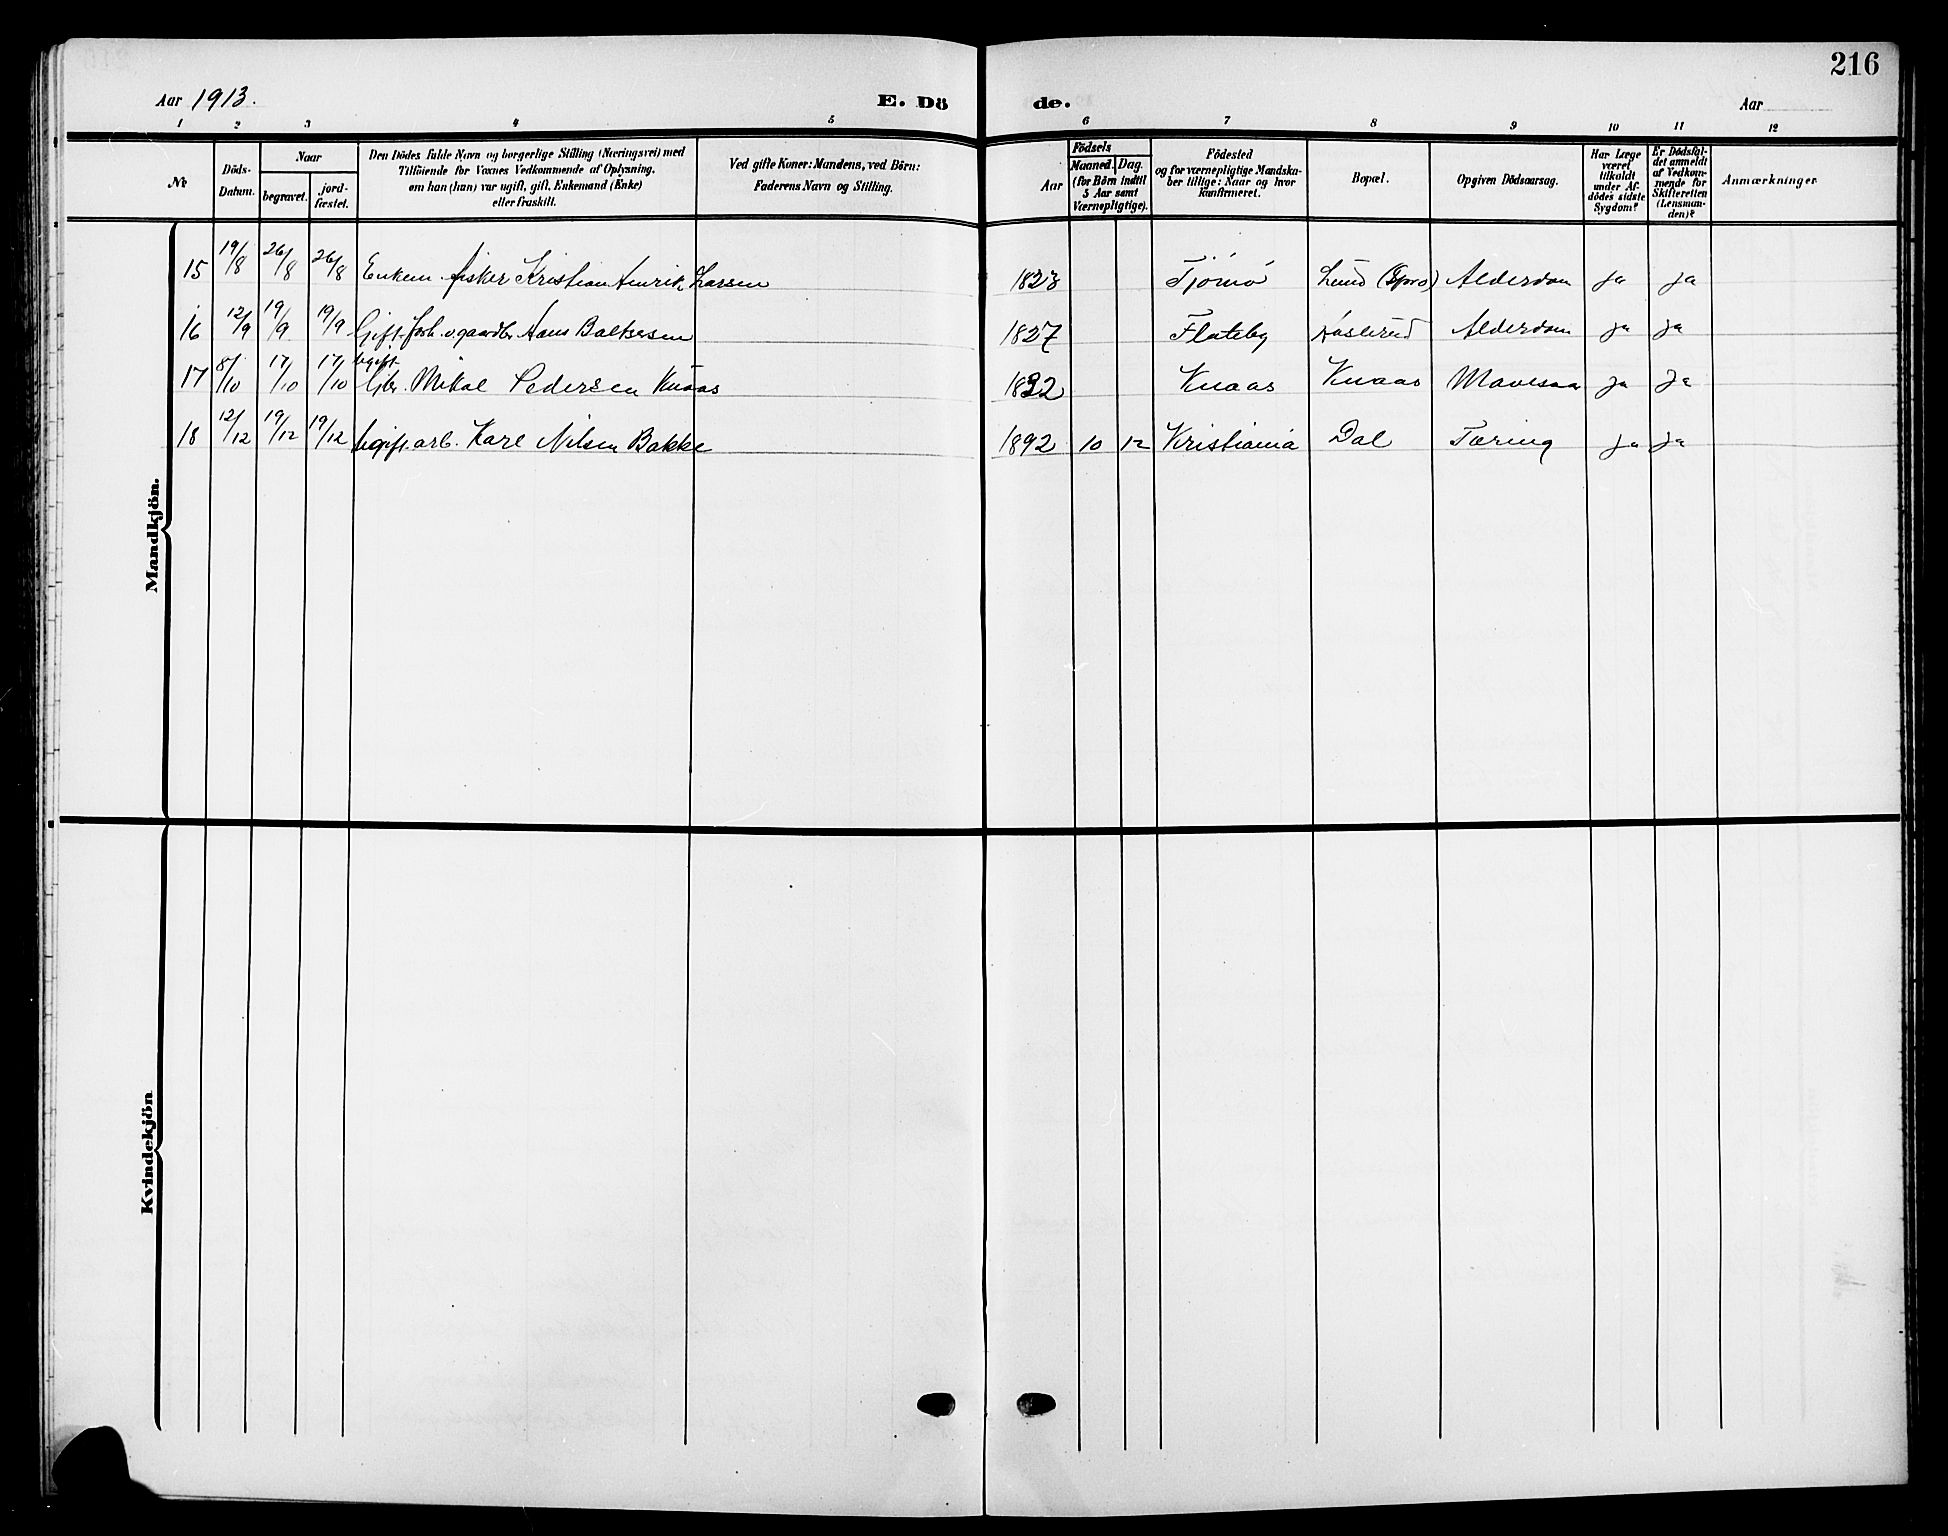 216
Aar 1913. E. Dö de. Aar
1 2 3 4 5 6 7 8 9 10 11 12
No
Döds-
Datum.
Naar
begravet.
jord-
fæstet.
Den Dödes fulde Navn og borgerlige Stilling (Næringsvei) med
Tilföiende for Voxnes Vedkommende af Oplysning,
om han (hun) var ugift, gift, Enkemand (Enke)
eller fraskilt.
Ved gifte Koner: Mandens, ved Börn:
Faderens Navn og Stilling.
Födsels
Aar
Maaned. Dag.
(for Börn indtil
5 Aar samt
Værnepligtige).
Födested
og for værnepligtige Mandska-
ber tillige: Naar og hvor
konfirmeret.
Bopæl.
Opgiven Dödsaarsag.
Har Læge
været
tilkaldt
under Af-
dödes sidste
Sygdom?
Er Dödsfal-
det anmeldt
af Vedkom-
mende for
Skifteretten
(Lensman-
den)?
Anmærkninger
Mandkjön.
15 19/8 26/8 26/8 Enkem. fisker Kristian Henrik Larsen 1823 Tjömö Lund (Spro) Alderdom ja ja
16 12/9 19/9 19/9 Gift forh. v. gaardbr Hans Baltsersen 1827 Flateby Alderdom ja ja
ugift
17 8/10 17/10 17/10 Gbr. Mikal Pedersen Knaas 1832 Knaas Knaas Mavesaar ja ja
18 12/12 19/12 19/12 Ugift. arb. Karl Nilsen Bakke 1892 10 12 Kristiania Dal Tæring ja ja
Kvindekjön